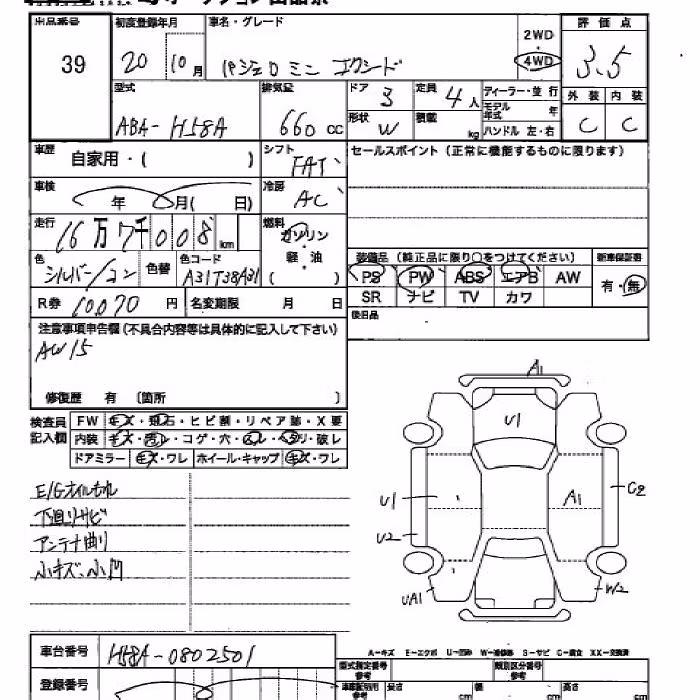 出品番号 初度登録年月 車名・グレード 2WD 評価点
39 20 10月 パジェロミニ エクシード 4WD 3.5
型式 排気量 ドア 定員 ディーラー・並行 外装 内装
3 4人 モデル年式 年
ABA-H58A 660cc 形状 W 積載 kg ハンドル 左・右 C C
車歴 自家用・( ) シフト FAT セールスポイント(正常に機能するものに限ります)
車検 年 月( 日) 冷房 AC
走行 16万7千008km 燃料 ガソリン・軽・油 ( )
色 シルバー/コン 色替 色コード A31T38A31 装備品(純正品に限り○をつけてください) 新車保証書
PS PW ABS エアB AW 有・無
R券 10070円 名変期限 月 日 SR ナビ TV カワ
注意事項申告欄(不具合内容等は具体的に記入して下さい) 後日品
AW15
修復歴 有 〔箇所 〕
A1
検査員記入欄 FW キズ・飛石・ヒビ割・リペア跡・X要
内装 キズ・汚レ・コゲ・穴・スレ・ヘタリ・破レ
ドアミラー キズ・ワレ ホイール・キャップ キズ・ワレ
U1
E/Gオイルもれ
下廻りサビ
アンテナ曲り
小キズ、小凹
U1 A1 C2
U2
UA1 W2
車台番号 H58A-0802501
A-キズ E-エクボ U-凹み W-補修跡 S-サビ C-腐食 XX-交換済
登録番号 型式指定番号 参考 類別区分番号 参考
車庫証明用 参考 長さ cm 幅 cm 高さ cm